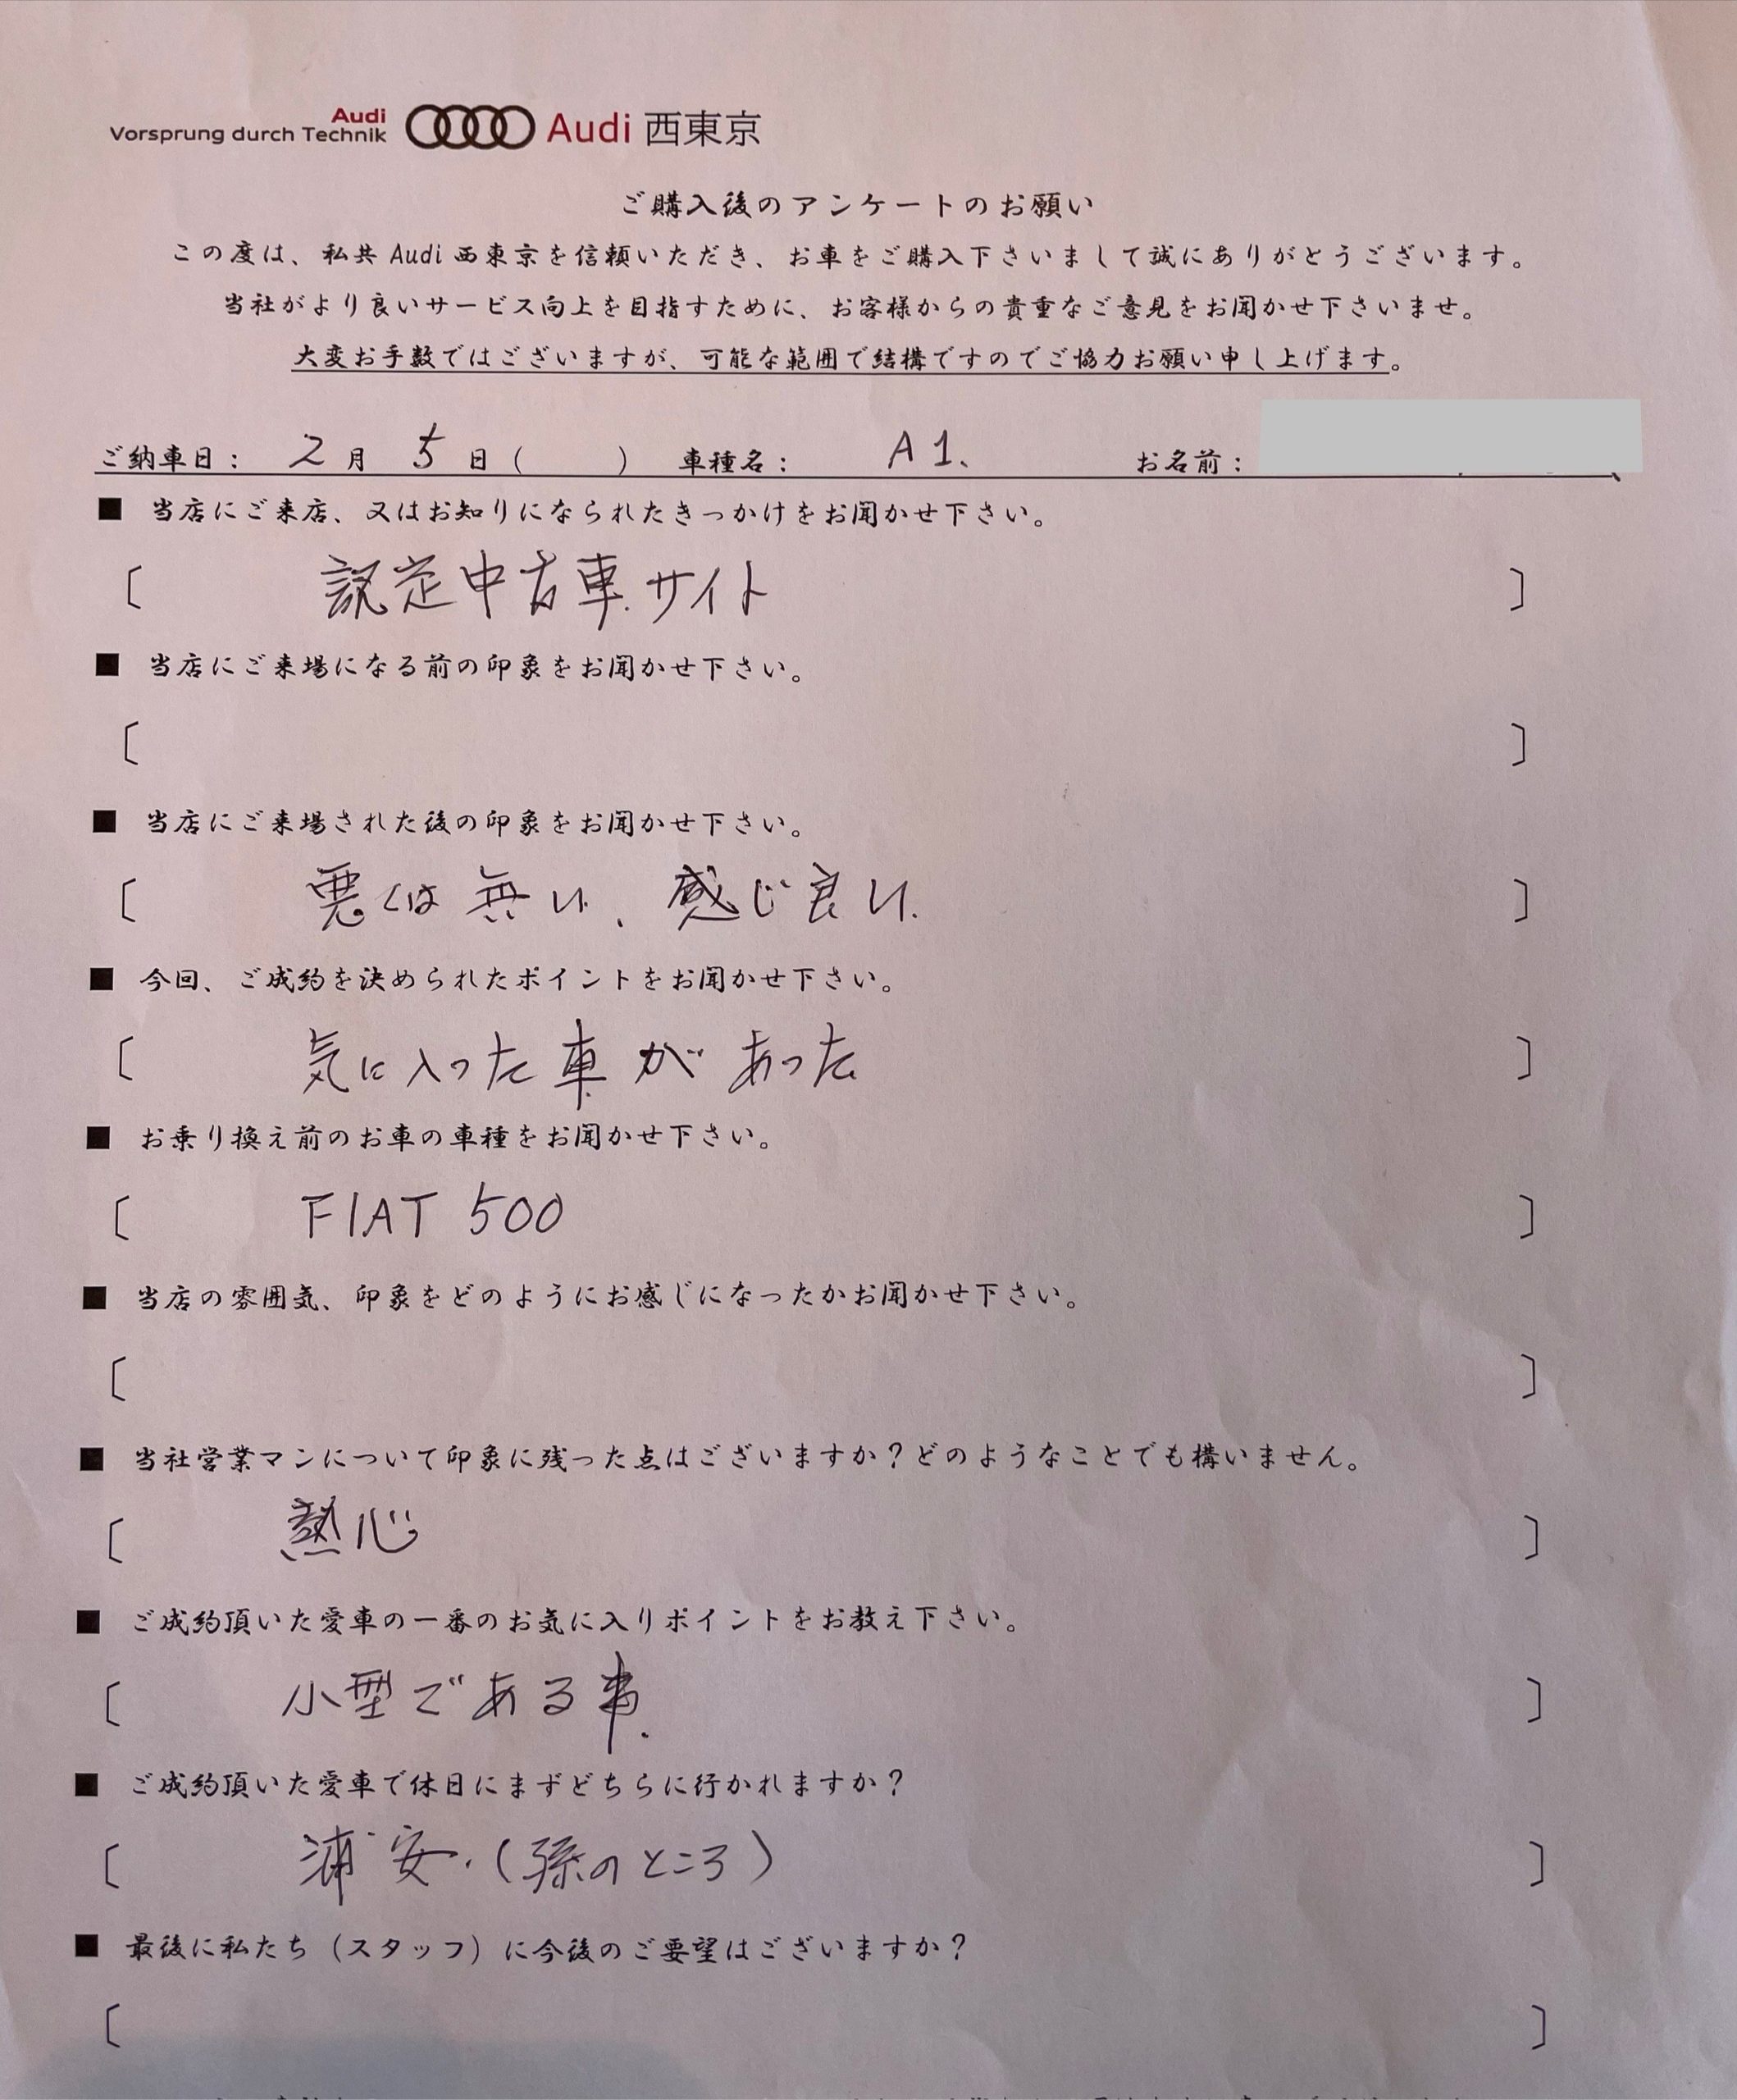 Audi
Vorsprung durch Technik
Audi 西東京
ご購入後のアンケートのお願い
この度は、私共 Audi 西東京を信頼いただき、お車をご購入下さいまして誠にありがとうございます。
当社がより良いサービス向上を目指すために、お客様からの貴重なご意見をお聞かせ下さいませ。
大変お手数ではございますが、可能な範囲で結構ですのでご協力お願い申し上げます。
ご納車日： 2月 5日（　　）　車種名： A1、　お名前：
■ 当店にご来店、又はお知りになられたきっかけをお聞かせ下さい。
〔 認定中古車サイト 〕
■ 当店にご来場になる前の印象をお聞かせ下さい。
〔 〕
■ 当店にご来場された後の印象をお聞かせ下さい。
〔 悪くは無い、感じ良い. 〕
■ 今回、ご成約を決められたポイントをお聞かせ下さい。
〔 気に入った車があった 〕
■ お乗り換え前のお車の車種をお聞かせ下さい。
〔 FIAT 500 〕
■ 当店の雰囲気、印象をどのようにお感じになったかお聞かせ下さい。
〔 〕
■ 当社営業マンについて印象に残った点はございますか？どのようなことでも構いません。
〔 熱心 〕
■ ご成約頂いた愛車の一番のお気に入りポイントをお教え下さい。
〔 小型である事. 〕
■ ご成約頂いた愛車で休日にまずどちらに行かれますか？
〔 浦安.（孫のところ） 〕
■ 最後に私たち（スタッフ）に今後のご要望はございますか？
〔 〕